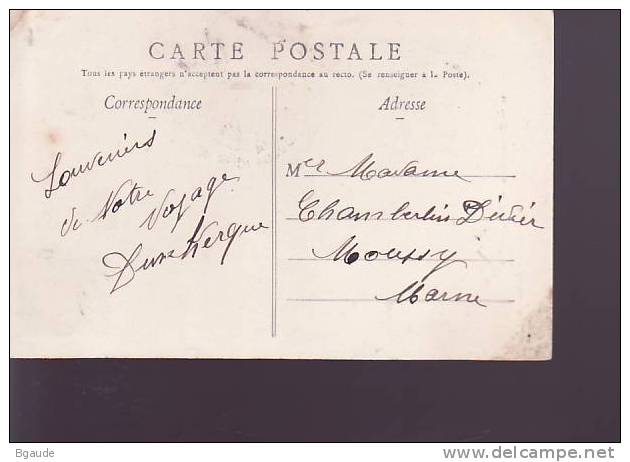 CARTE POSTALE
Tous les pays étrangers n'acceptent pas la correspondance au recto. (Se renseigner à la Poste).
Correspondance
Adresse
Souveniers
de Notre
Voyage
Dunkerque
Mer Madame
Chamberlin Didier
Moussy
Marne
Bgaude
delcampe.net